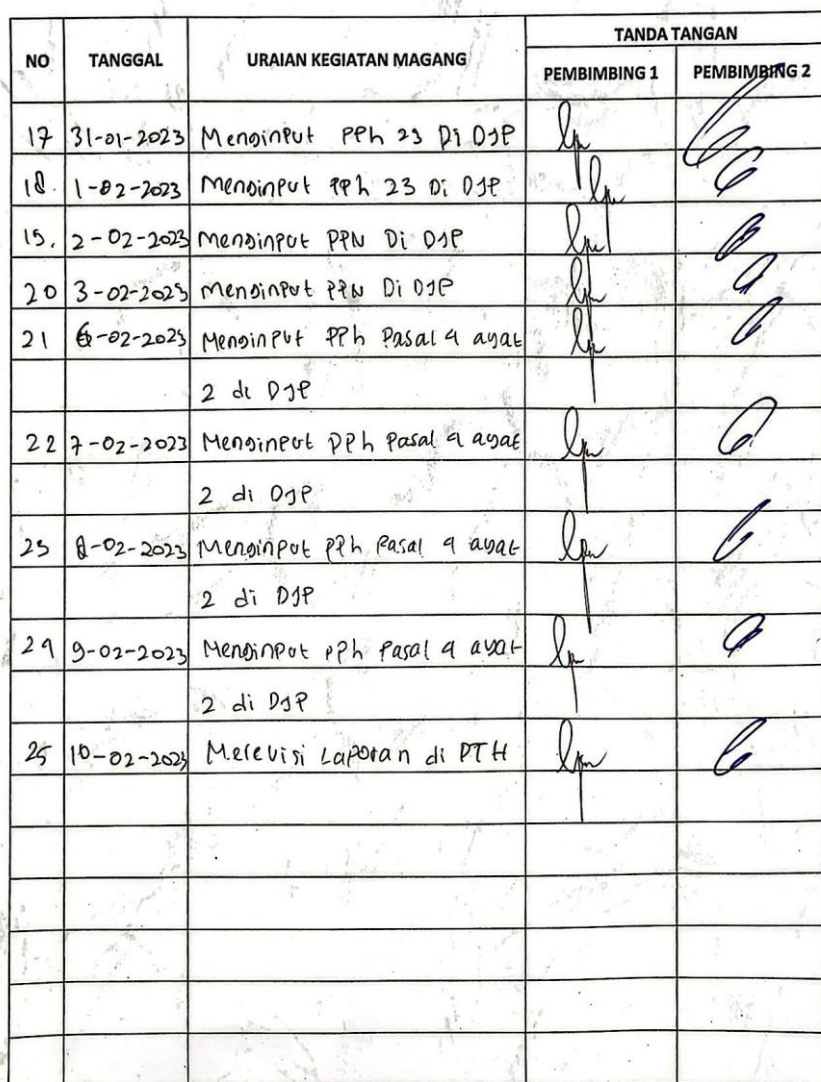 TANDA TANGAN
NO TANGGAL URAIAN KEGIATAN MAGANG PEMBIMBING 1 PEMBIMBING 2
17 31-01-2023 Menginput PPh 23 Di DJP
18. 1-02-2023 Menginput PPh 23 Di DJP
19. 2-02-2023 Menginput PPN Di DJP
20 3-02-2023 Menginput PPN Di DJP
21 6-02-2023 Menginput PPh Pasal 4 ayat
2 di DJP
22 7-02-2023 Menginput PPh Pasal 4 ayat
2 di DJP
23 8-02-2023 Menginput PPh Pasal 4 ayat
2 di DJP
24 9-02-2023 Menginput PPh Pasal 4 ayat
2 di DJP
25 10-02-2023 Merevisi Laporan di PTH